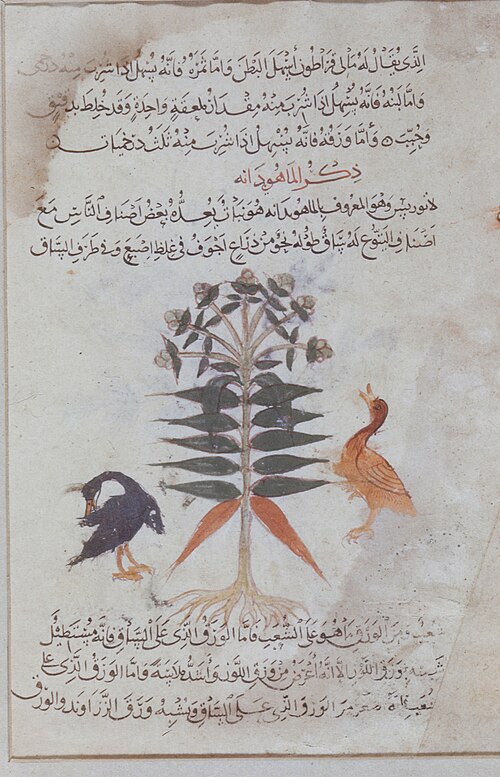 الذي يقال له مالي قراطون أسهل البطن واما ثمره فانه يسهل اذا شرب منه
واما لبنه فانه يسهل اذا شرب منه مقدار ملعقة واحدة وقد خلط بدقيق
وحبب واما ورقه فانه يسهل اذا شرب منه ثلث درخميات
ذكر الماهودانه
لاثوريس وهو المعروف بالماهودانه هو نبات يعده بعض اصناف الناس مع
اصناف اليتوع له ساق طوله نحو من ذراع اجوف في غلظ اصبع وفي طرف الساق
شعب ومن الورق ما هو على الشعب فاما الورق الذي على الساق فانه مستطيل
شبيه بورق اللوز الا انه اعرض من ورق اللوز واشد ملاسة واما الورق الذي على
شعبه فانه اصغر من الورق الذي على الساق ويشبه ورق الزراوند والورق